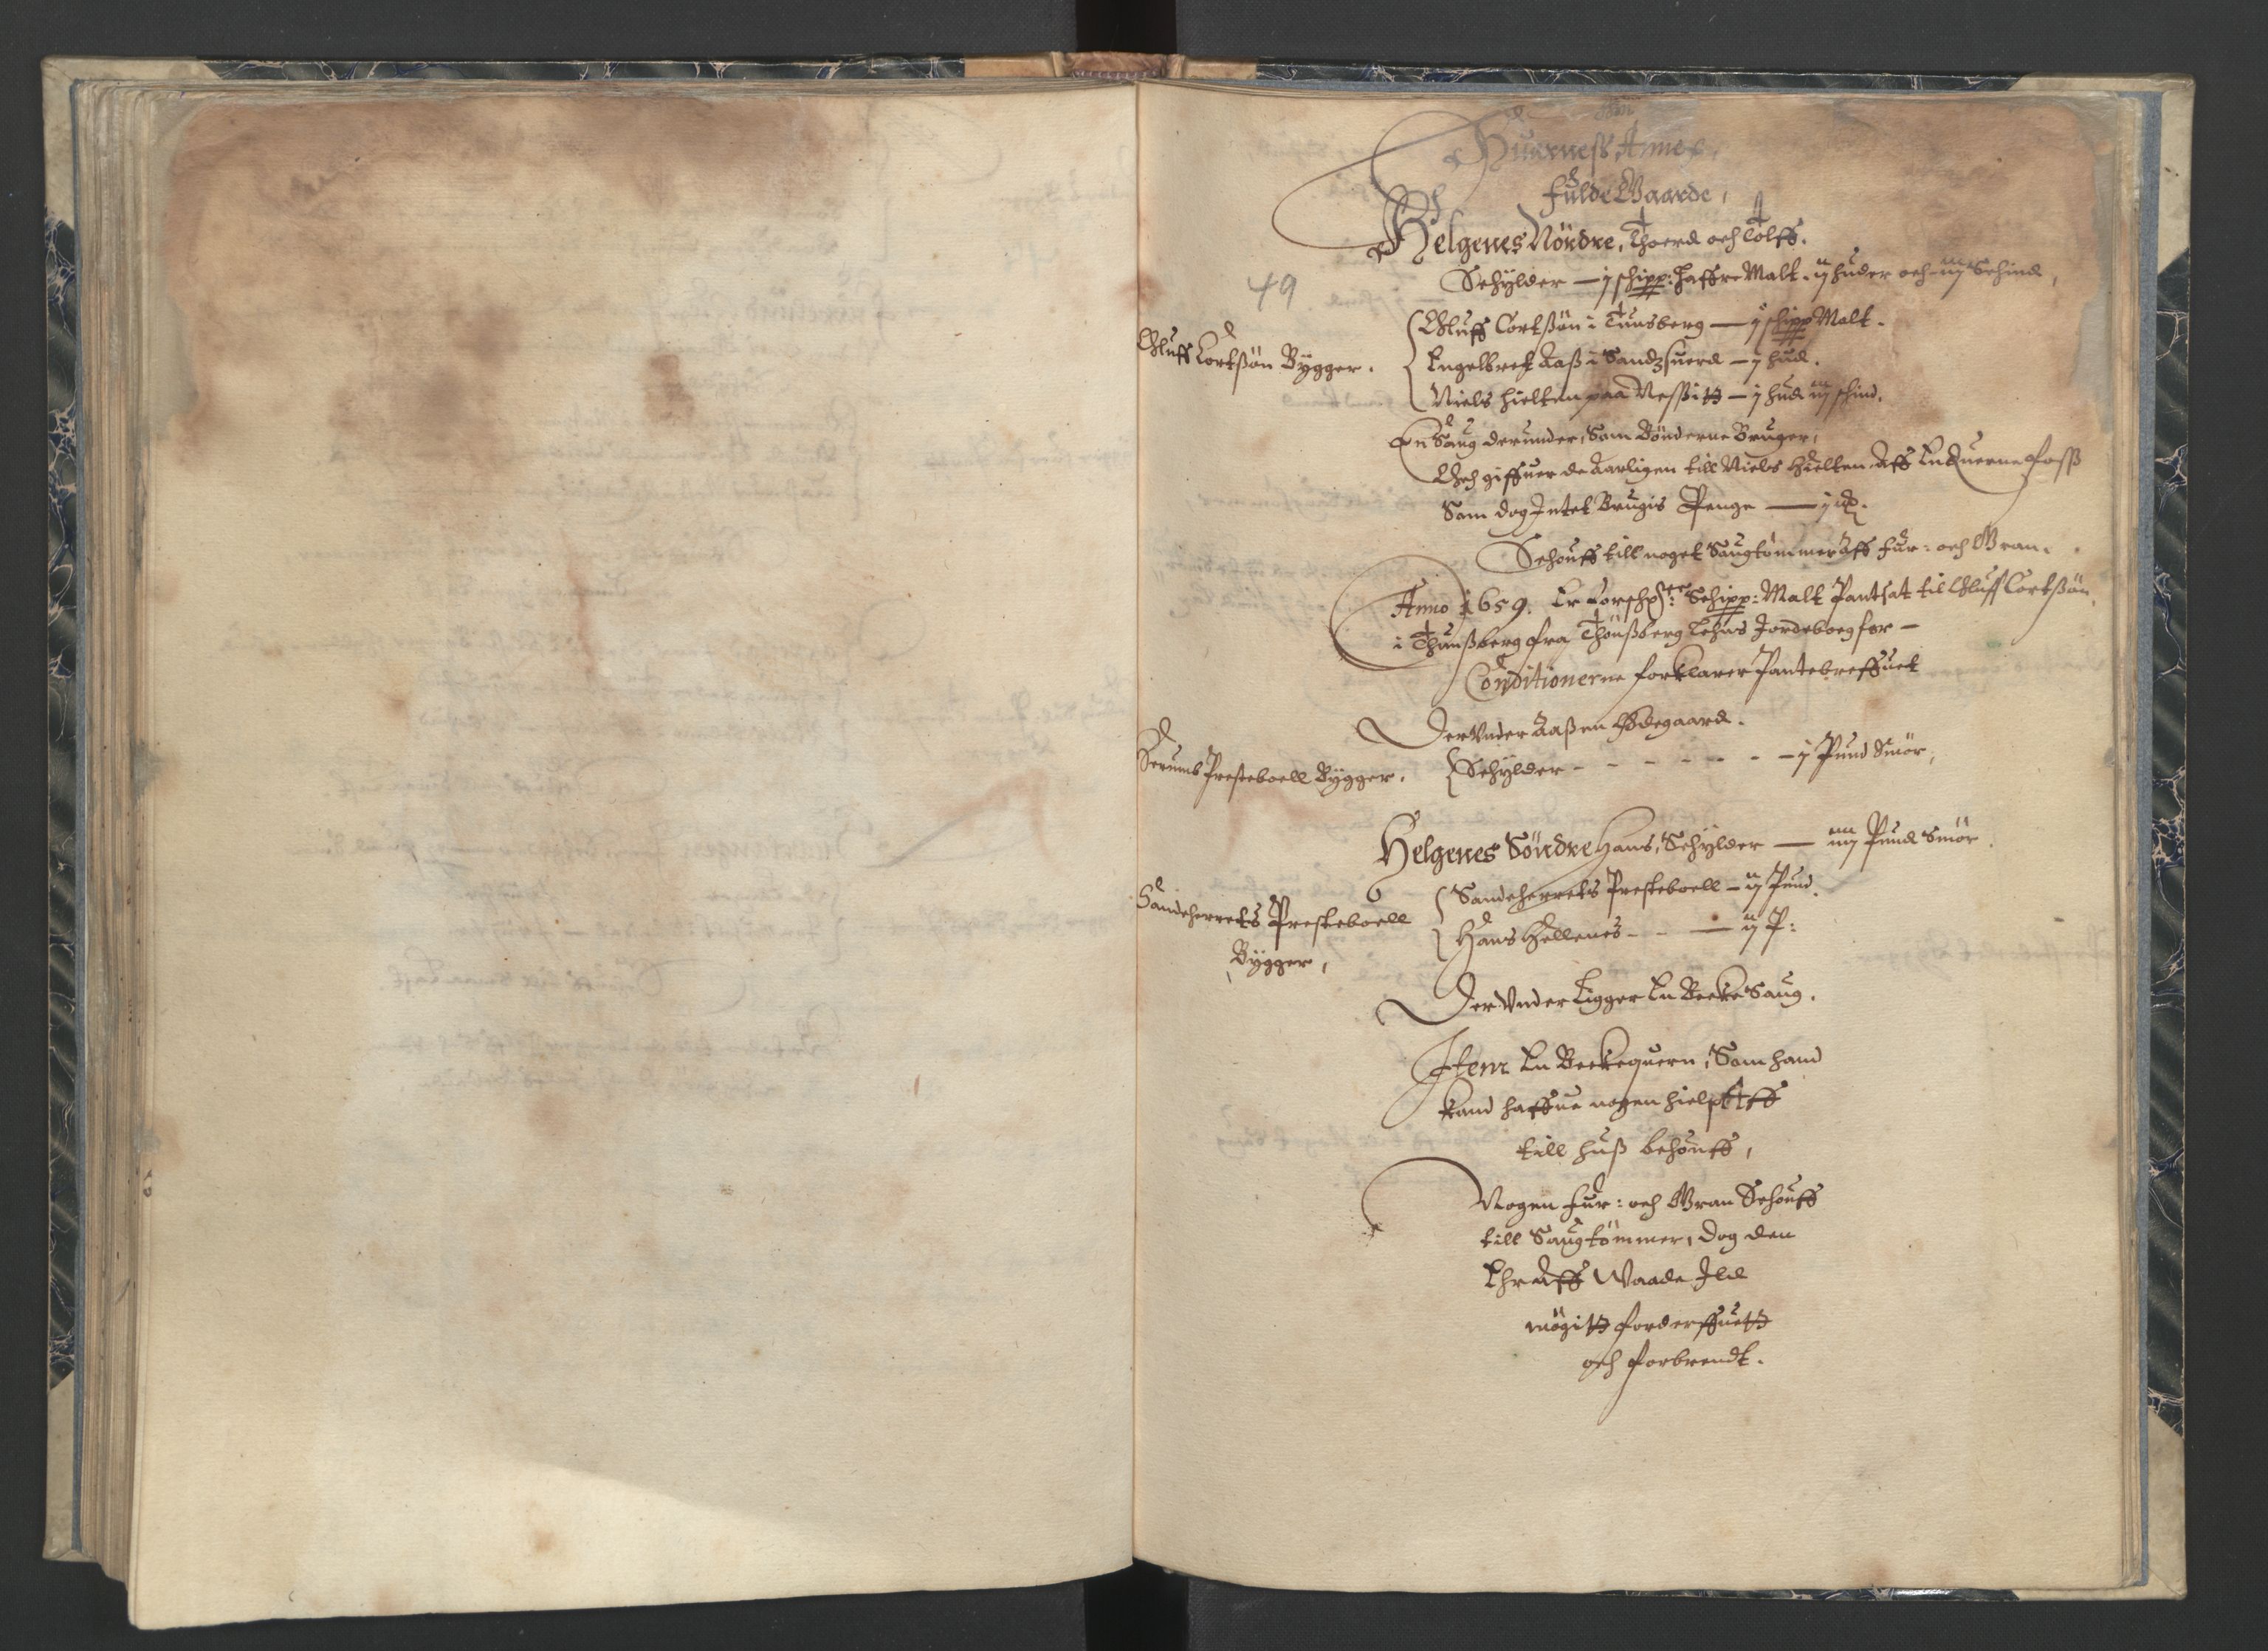 Huarness Annex,
Fulde Gaarde,
Helgenes Nördre, Thoerd och Tolff.
Schylder — j schipp: Haffre Malt. ij huder och iij Schind,
49
Oluff Cortßön Bygger.
Oluff Cortßön i Tunsberg — j schipp Malt.
Engelbret Aaß i Sandzsuerd — j hud.
Niels Hielten paa Neßit — j hud iij schind.
En Saug derunder, Som Bönderne Bruger,
Och giffuer de Aarligen till Niels Hielten Aff En Querne foss
Som dog Intet Brugis Penge — j
Schouff till noget Saugtömmer Aff Fur: och Gran.
Anno 1659. Er Schipp: Malt Pantsat til Oluff Cortßön
i Thunßberg fra Thönßberg Lehns Jordeboeg for —
Conditionerne forklarer Pantebreffuet
Der Vnder Aaßen Ödegaard.
Serumb Presteboell Bygger.
Schylder - - - - - - - j Pund Smör,
Helgenes Söndre Hans, Schylder — iiij Pund Smör.
Sandeherrets Presteboell
Bygger,
Sandeherrets Presteboell — ij Pund.
Hans Hellenes - - — ij P:
Der Vnder Ligger En Becke Saug.
Item En Beckequern, Som hand
kand haffue nogen hielp Aff
till huß behouff,
Nogen Fur: och Gran Schouff
till Saugtömmer, dog den
Ehr Aff Waade Ild
mögit forderffuet
och forbrendt.